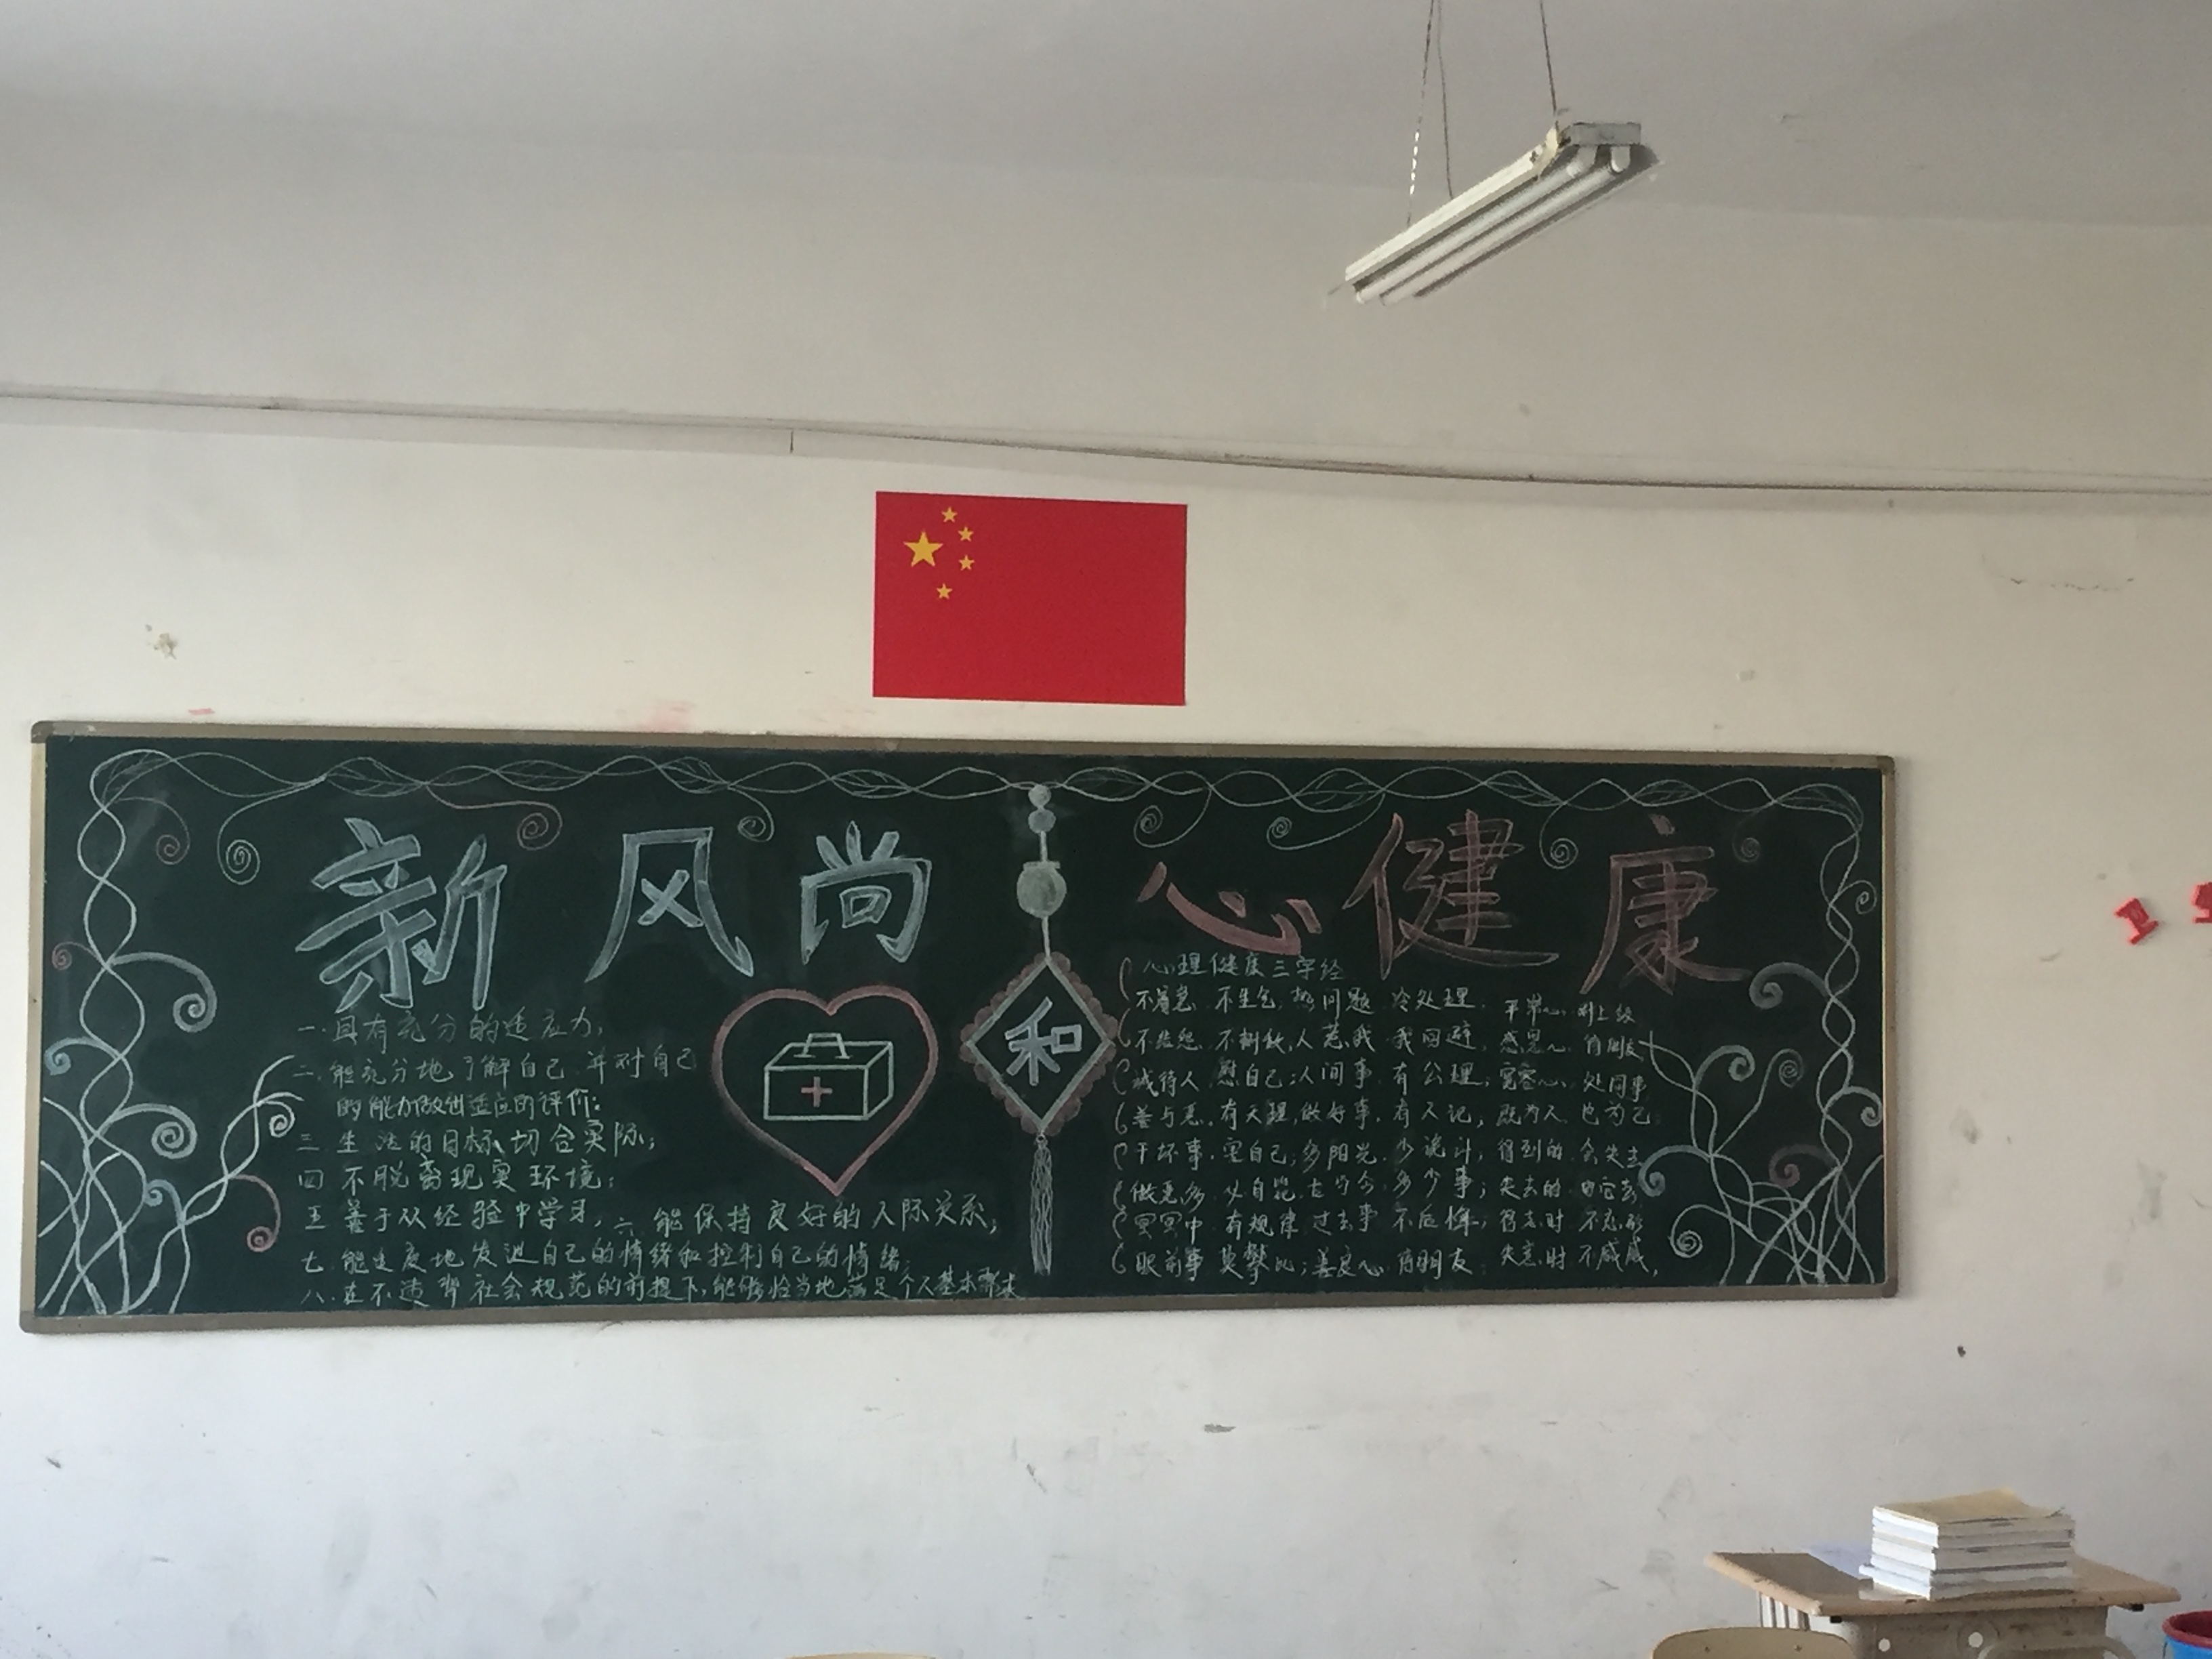 新风尚
心健康
和
一.具有充分的适应力;
二.能充分地了解自己.并对自己
的能力做出适应的评价;
三 生活的目标切合实际;
四 不脱离现实环境;
五 善于从经验中学习,六.能保持良好的人际关系;
七.能适度地发泄自己的情绪和控制自己的情绪;
八.在不违背社会规范的前提下,能够恰当地满足个人基本需求
心理健康三字经
不着急.不生气,热问题.冷处理.平常心.对上级
不抱怨.不 人惹我.我回避.感恩心.
诚待人.慰自己;人间事.有公理;宽容心.处同事
善与恶.有天理,做好事.有人记,既为人.也为己;
干坏事.害自己;多阳光.少诡计;得到的.会失去
做恶多.必自毙.古与今.多少事;失去的.由它去
冥冥中.有规律.过去事.不后悔;得志时.不忘形
眼前事.莫攀比;善良心.有朋友.失意时.不戚戚,